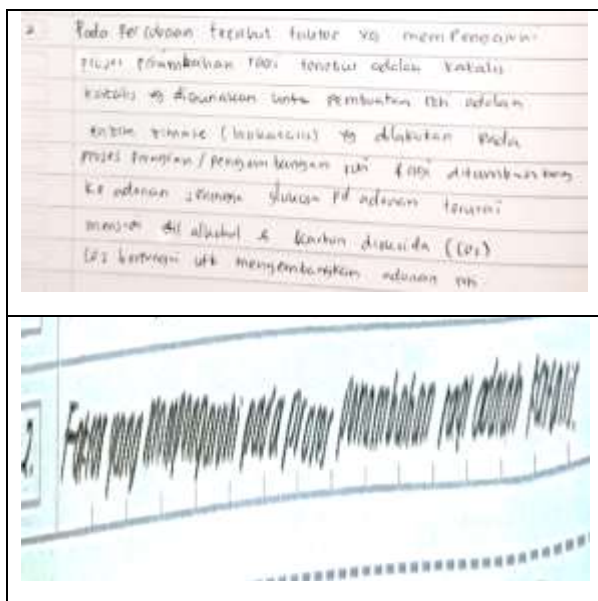 2 Pada Percobaan tersebut faktor yg memPengaruhi
proses penambahan ragi tersebut adalah katalis
katalis yg digunakan untuk pembuatan roti adalah
enzim zimase (biokatalis) yg dilakukan pada
proses peragian / pengembangan roti ragi ditambahkan
ke adonan sehingga glukosa pd adonan terurai
menjadi etil alkohol & karbon dioksida (CO2)
CO2 berfungsi utk mengembangkan adonan roti
2. Faktor yang mempengaruhi pada proses penambahan ragi adalah katalis.